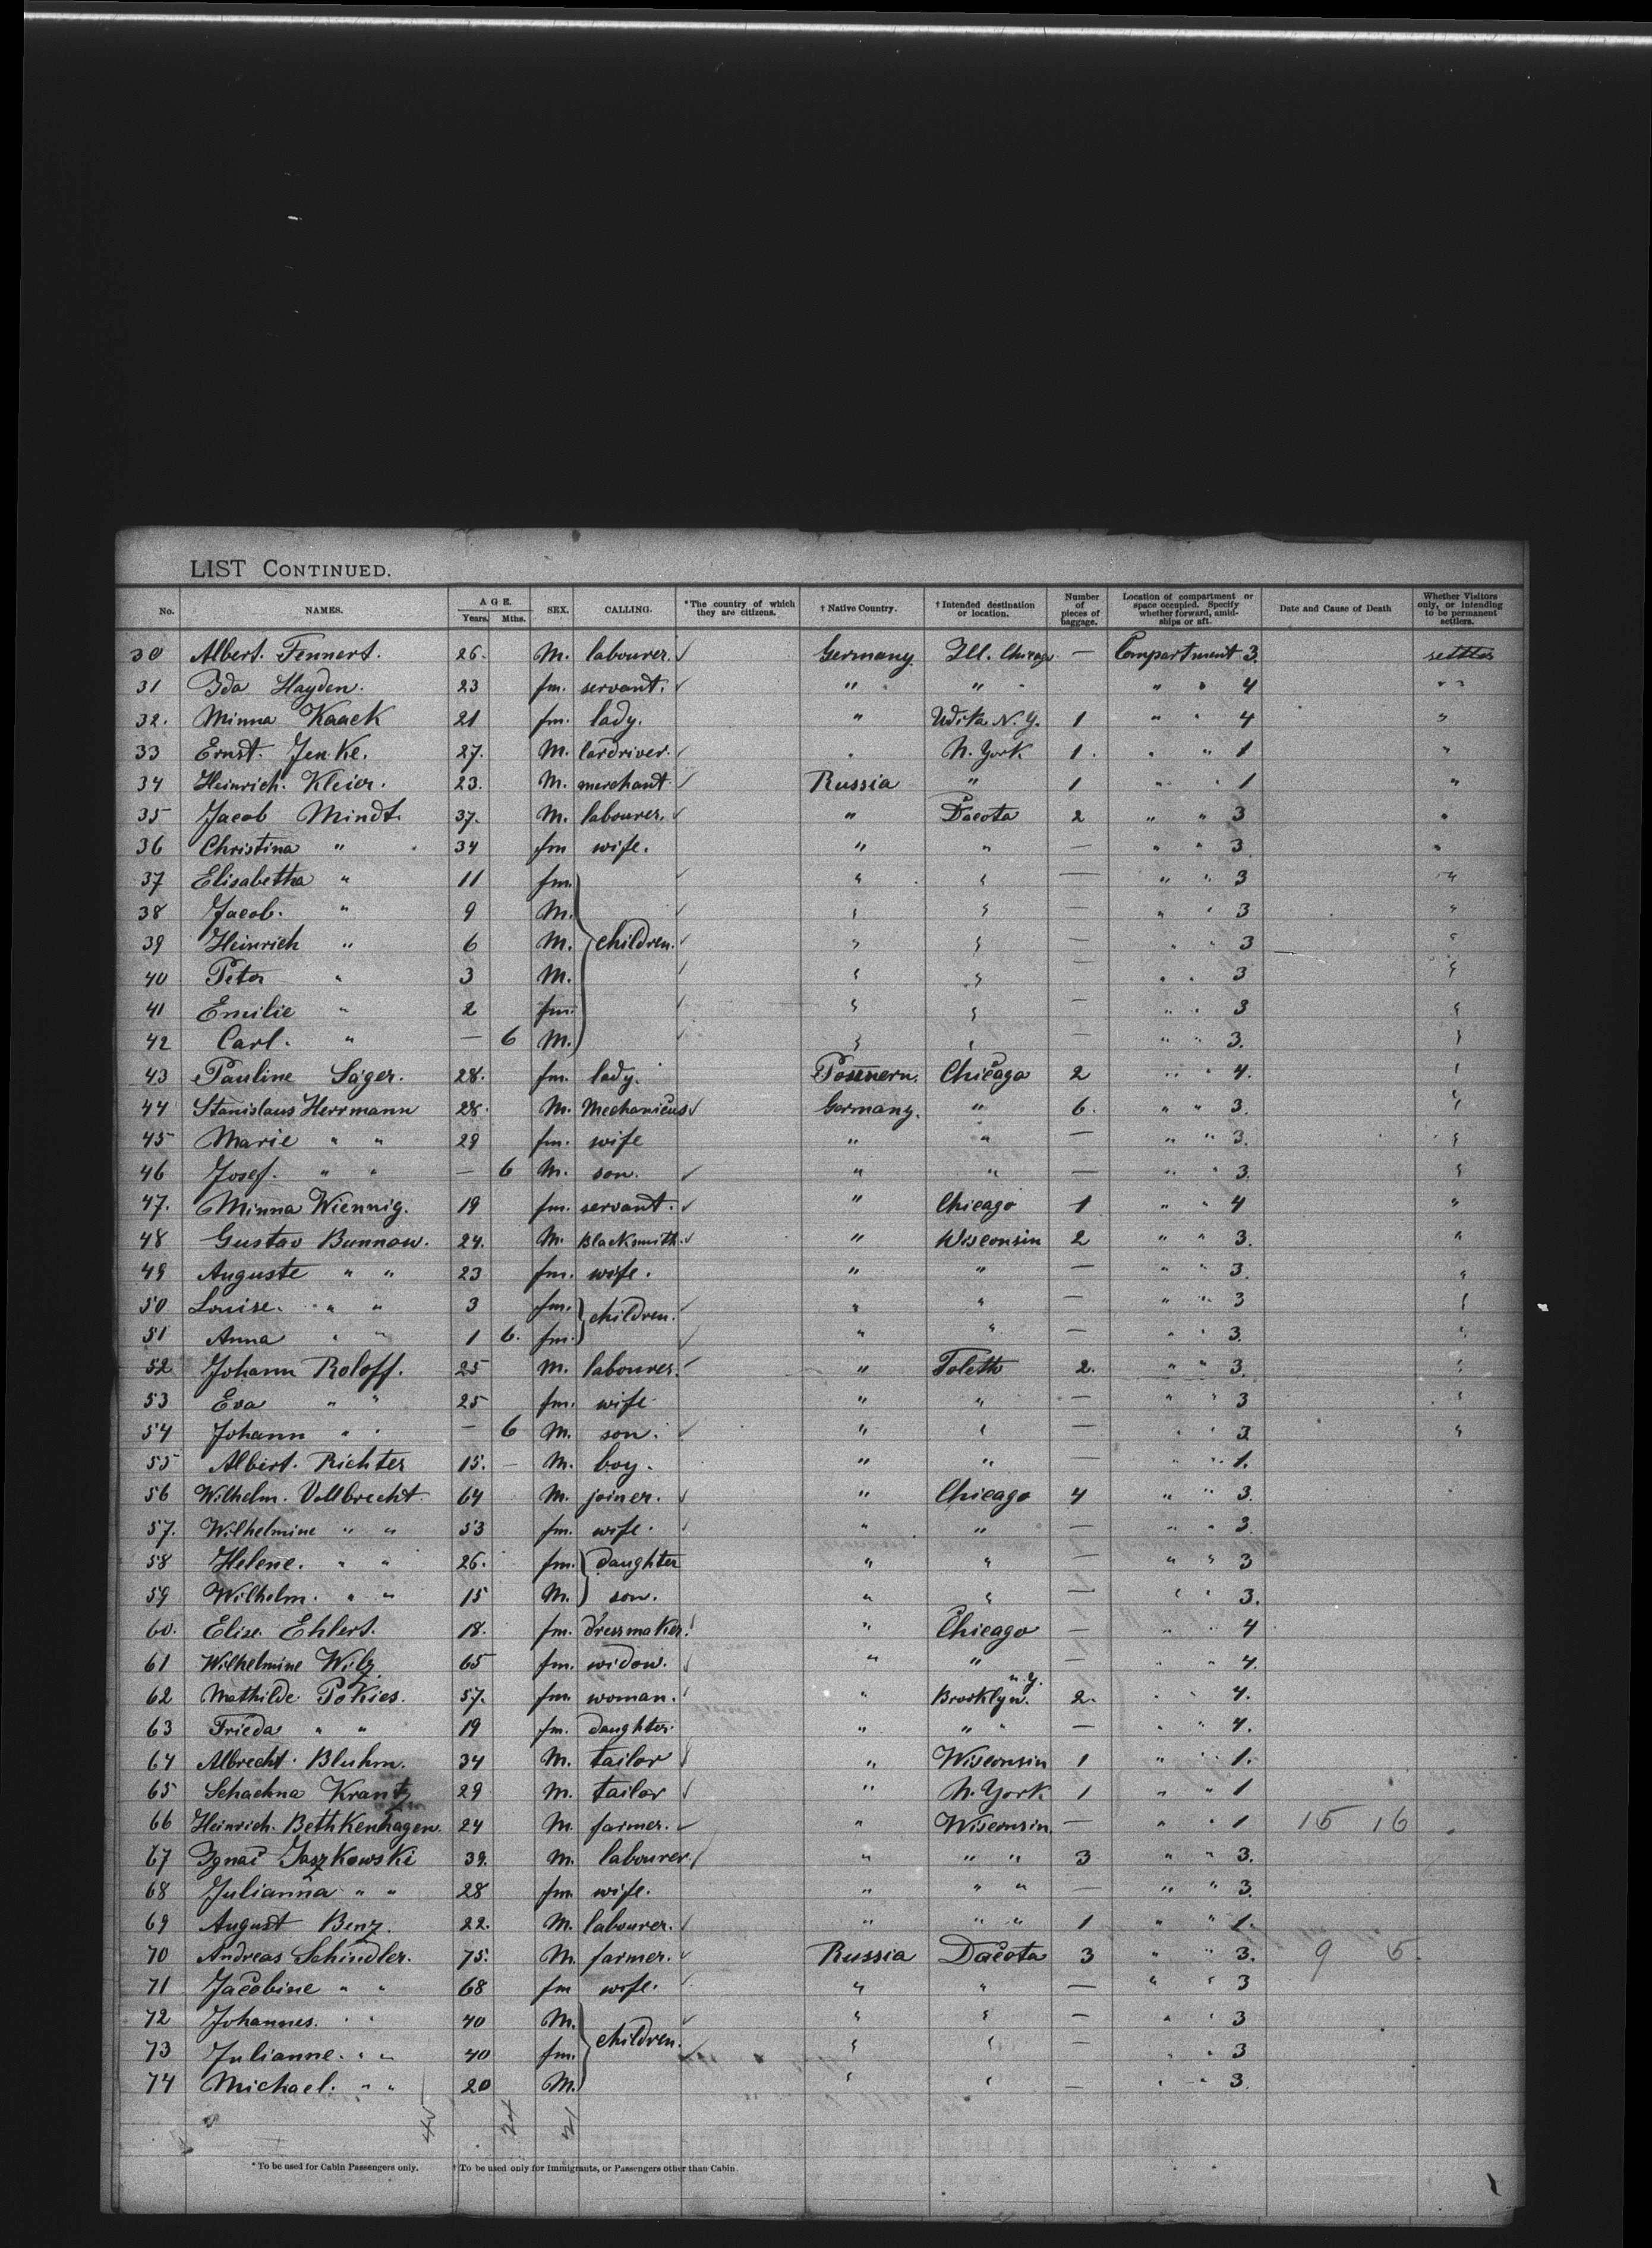 LIST CONTINUED.
No. NAMES. AGE. Years. Mths. SEX. CALLING. *The country of which they are citizens. † Native Country. † Intended destination or location. Number of pieces of baggage. Location of compartment or space occupied. Specify whether forward, amidships or aft. Date and Cause of Death Whether Visitors only, or intending to be permanent settlers.
30 Albert. Fennert. 26. M. labourer. Germany. Ill. Chicago — Compartment 3. settler
31 Ida Hayden. 23 fm. servant. " " " " 4 "
32. Minna Kaack 21 fm. lady. " Utika N.Y. 1 " " 4 "
33 Ernst. Jenke. 27. M. cardriver. " N. York 1. " " 1 "
34 Heinrich. Kleier. 23. M. merchant Russia " 1 " " 1 "
35 Jacob Mindt. 37. M. labourer. " Dacota 2 " " 3 "
36 Christina " 34 fm wife. " " — " " 3 "
37 Elisabetha " 11 fm. " " — " " 3 "
38 Jacob. " 9 M. " " — " " 3 "
39 Heinrich " 6 M. children. " " — " " 3 "
40 Peter " 3 M. " " — " " 3 "
41 Emilie " 2 fm. " " — " " 3 "
42 Carl. " — 6 M. " " — " " 3. "
43 Pauline Säger. 28. fm. lady. Chicago 2 " " 4. "
44 Stanislaus Herrmann 28. M. Mechanicus Germany. " 6. " " 3. "
45 Marie " " 29 fm. wife " " — " " 3. "
46 Josef. " " — 6 M. son. " " — " " 3. "
47. Minna Wiennig. 19 fm. servant. " Chicago 1 " " 4 "
48 Gustav Bunnow. 24. M. Blacksmith. " Wisconsin 2 " " 3. "
49 Auguste " " 23 fm. wife. " " — " " 3. "
50 Louise. " " 3 fm. children. " " — " " 3 "
51 Anna " " 1 6. fm. " " — " " 3. "
52 Johann Roloff. 25 M. labourer. " Toleth 2. " " 3. "
53 Eva " " 25 fm. wife " " — " " 3 "
54 Johann " " — 6 M. son. " " — " " 3 "
55 Albert. Richter 15. — M. boy. " " — " " 1.
56 Wilhelm. Vollbrecht 64 M. joiner. " Chicago 4 " " 3.
57. Wilhelmine " " 53 fm. wife. " " — " " 3.
58 Helene. " " 26. fm. daughter " " — " " 3
59 Wilhelm. " " 15 M. son. " " — " " 3.
60. Elise. Ehlert. 18. fm. dressmaker. " Chicago — " " 4
61 Wilhelmine Wilz. 65 fm. widow. " " — " " 4.
62 Mathilde Pokies. 57. fm. woman. " Brooklyn. N.Y. 2. " " 4.
63 Frieda " " 19 fm. daughter. " " " — " " 4.
64 Albrecht. Bluhm. 34 M. tailor " Wisconsin 1 " " 1.
65 Schachna Krantz 29 M. tailor " N. York 1 " " 1
66 Heinrich. Bethkenhagen. 24 M. farmer. " Wisconsin. — " " 1 15 16
67 Ignac Jaszkowski 39. M. labourer. " " " 3 " " 3.
68 Julianna " " 28 fm. wife. " " " — " " 3.
69 August Benz. 22. M. labourer. " " " 1 " " 1.
70 Andreas Schindler. 75. M. farmer. Russia Dacota 3 " " 3. 9 5.
71 Jacobine " " 68 fm wife. " " — " " 3
72 Johannes. " " 40 M. " " — " " 3
73 Julianne. " " 40 fm. children. " " — " " 3
74 Michael. " " 20 M. " " — " " 3.
45 24 21
* To be used for Cabin Passengers only. † To be used only for Immigrants, or Passengers other than Cabin.